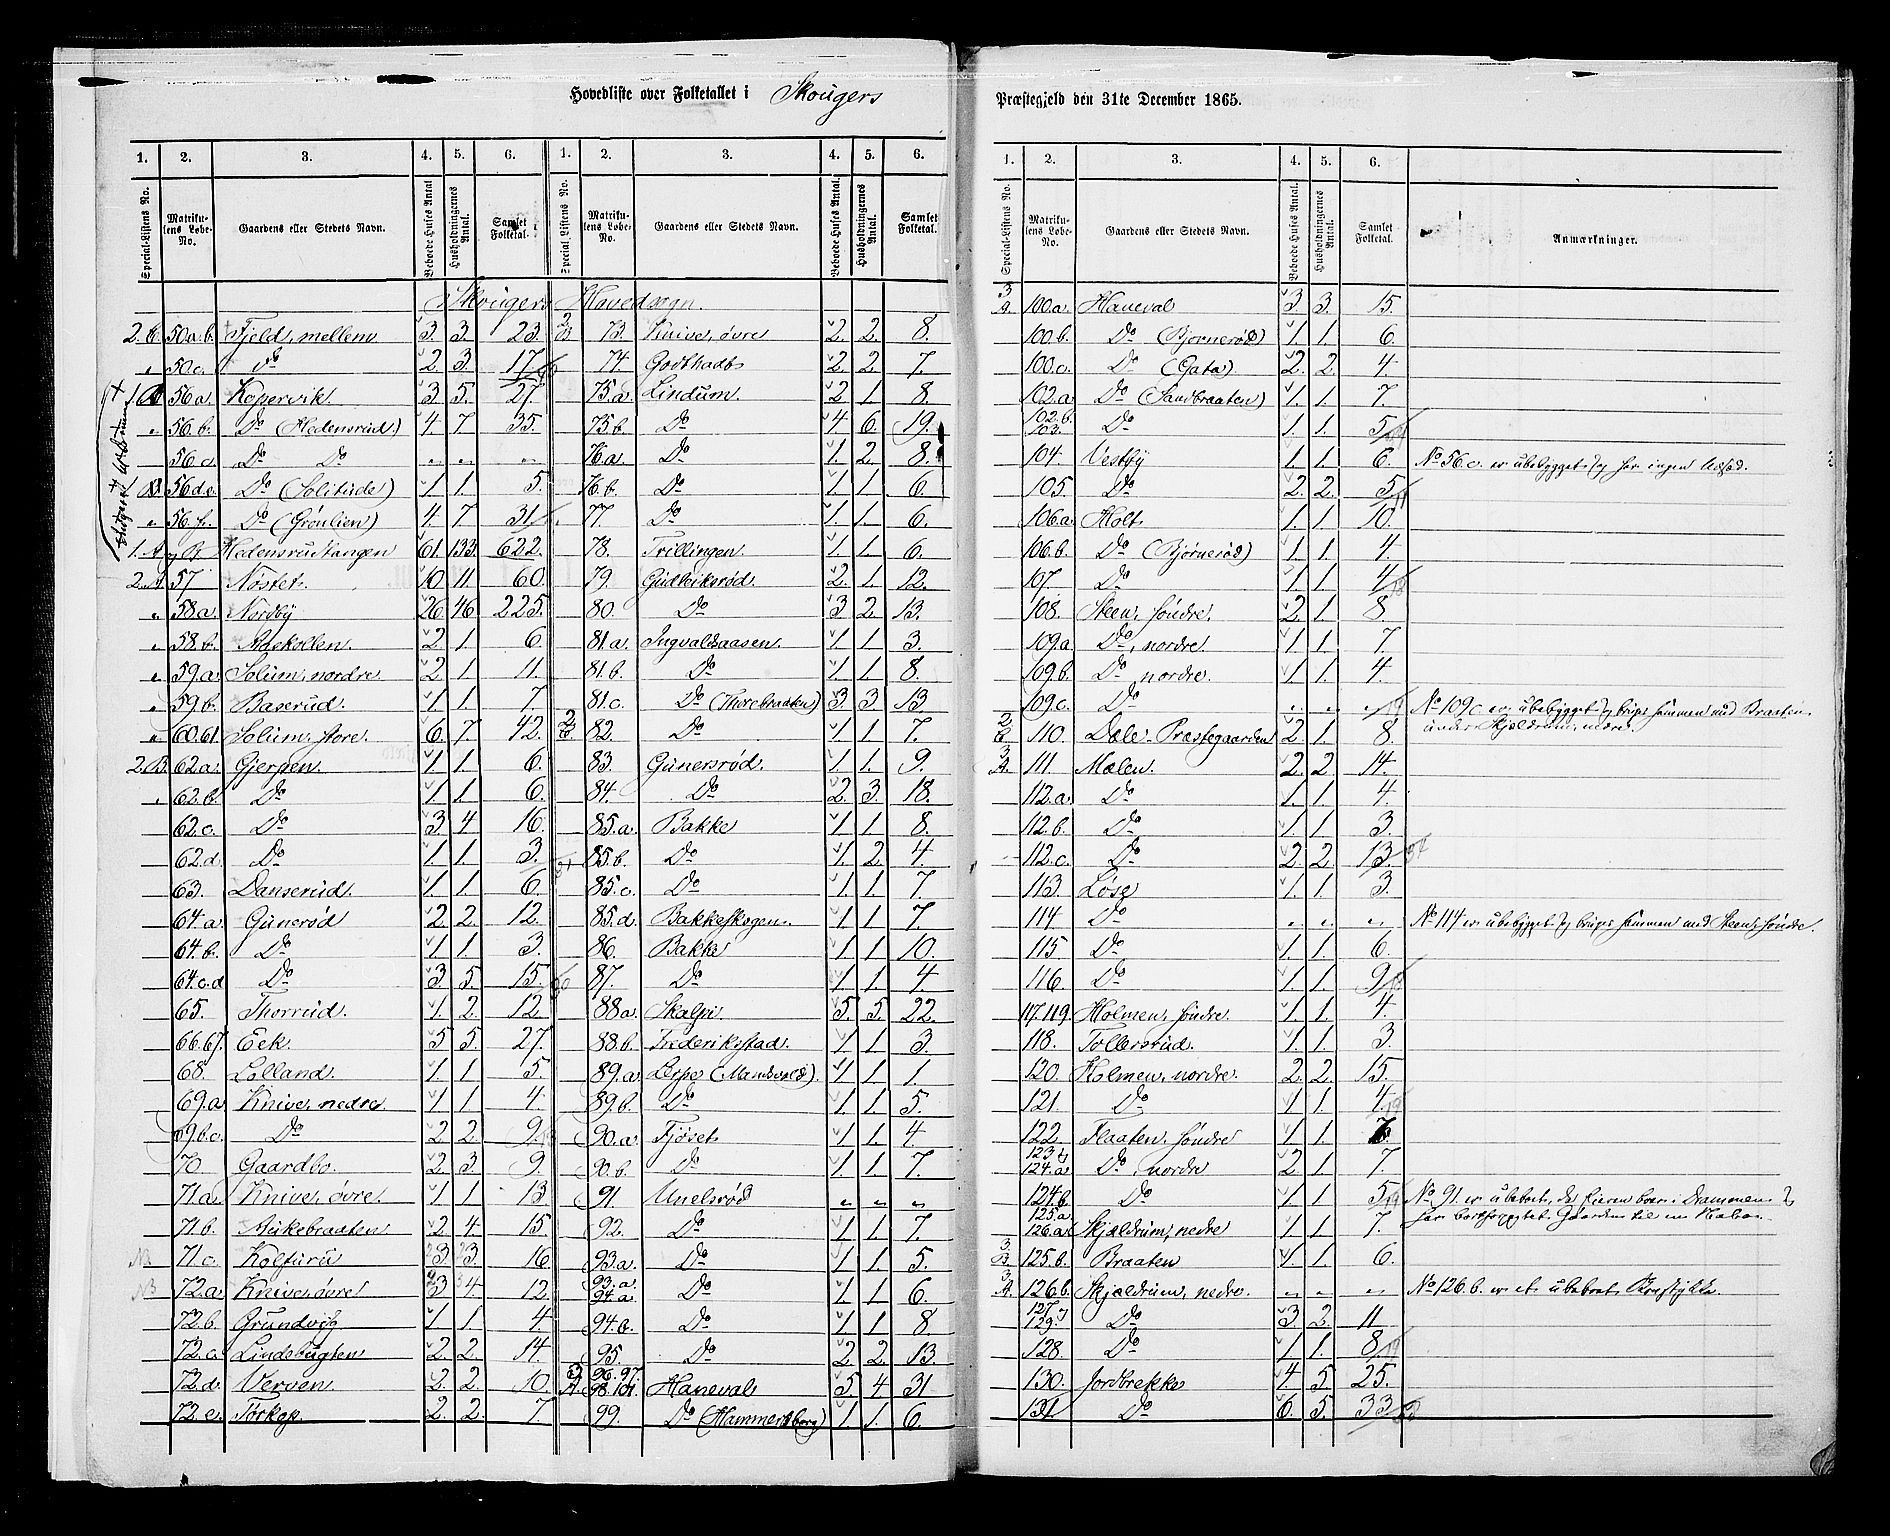 Hovedliste over Folketallet i Skougers Præstegjeld den 31te December 1865.
1. 2. 3. 4. 5. 6. 1. 2. 3. 4. 5. 6.
Special-Listens No. Matrikulens Løbe-No. Gaardens eller Stedets Navn. Beboede Huses Antal Husholdningernes Antal. Samlet Folketal. Special-Listens No. Matrikulens Løbe-No. Gaardens eller Stedets Navn. Beboede Huses Antal. Husholdningernes Antal. Samlet Folketal.
Skougers Hovedsogn.
2. 50a.b. Fjeld, mellem 3. 3. 23.
50.c. do 2 3. 17
1. 56a. Kopervik 3. 5. 27.
56.b. Do (Hedensrud.) 4. 7. 35.
56.c. Do Do " " "
56d.e. Do (Solitude) 1. 1. 5.
56.f. Do (Grønlien) 4. 7 31
1. A og B. Hedensrustangen 61. 133. 622.
2.A. 57 Nøstet. 10 11 60.
58a. Nordby 26 46 225.
58.b. 2. 1. 6.
59.a. Solum, nordre 2 1 11.
59.b. Baserud. 1. 1. 7.
60.61 Solum, store. 6. 7. 42.
2.B. 62a. Gjerpen. 1 1. 6.
62.b. Do 1 1. 6.
62.c. Do 3 4 16.
62.d. Do 1 1. 3.
63. Danserud. 1. 1. 6.
64.a. Gunerød 2. 2. 12.
64.b. Do 1 1. 3.
64.c.d Do 3 5. 15.
65. Thorrud. 1. 2. 12
66.67. Eek. 5 5. 27.
68. Lolland. 1. 1 5
69.a Knive, nedre. 1 1 4.
69.b.c. Do 2 2. 9.
70 Gaardbo. 2. 3. 9.
71.a. Knive, øvre. 1 1 13
71.b. Aukebraaten 2. 4. 15.
NB 71.c. Kolfuru 3. 3. 16
NB 72.a. Knive, øvre 3 4. 12
72.b. Grundvig 1 1 4.
72.c. Lindsbugten 2. 2. 14.
72.d. Verven 2. 2. 10.
72.e. Tørkop. 2. 2. 7
2 B 73. Knive, øvre 2. 2. 8.
74 Godthaab 2 2 7.
75.a Lindum. 2 1. 8.
75b. Do 4 6. 19.
76.a. Do 1. 2. 8.
76.b. Do 1. 1. 6.
77. Do 1. 1. 6.
78. Trillingen. 1. 1. 6.
79. Gudleiksrød. 2. 1. 12.
80. Do 3 2. 13.
81.a. Ingvaldsaasen. 1 1 3.
81.b. Do 1. 1 8.
81.c. Do (Thorebraaten) 3. 3. 13
2 C 82. Do 1. 1. 7.
83. Gunersrød. 1. 1. 9.
84. Do 2. 3. 18.
85.a. Bakke 1. 1 8.
85.b. Do 1. 2. 4.
85.c. Do 1. 1. 7.
85.d. Bakkeskogen. 1 1 7.
86. Bakke 1 1 10.
87. Do 1. 1 4
88a. Skalpi 5. 5 22.
88.b. Frederiksstad. 1. 1. 3.
89.a. Lerpe (Mandsvold). 1 1. 1.
89.b. Do 1. 1. 5.
90.a. Fjøset 1. 1. 4.
90.b. Do 1. 1. 7.
91. Unelsrød " " "
92. Do 1 1 7.
93.a. Do 1 1 5.
93.a. 94.a. Do 1. 1 6.
94.b. Do 1 1 8
95. Do 2. 2. 13.
3 A. 96.97. 98.101. Haneval 5 4 31
99. Do (Hammersborg) 1. 1. 6.
1. 2. 3. 4. 5. 6.
Special-Listens No. Matrikulens Løbe-No. Gaardens eller Stedets Navn. Beboede Huses Antal. Husholdningernes Antal. Samlet Folketal. Anmærkninger.
3 A. 100.a. Haneval 3 3. 15.
100.b. Do (Bjørnerød) 1. 1. 6.
100.c. Do (Gata) 2. 2. 4
102.a Do (Sandbraaten) 1. 1 7.
102.b. 103. Do 1. 1. 5
104. Vestby 1. 1. 6. No 56.c. er ubebygget og har ingen Udsæd.
105. Do 2. 2. 5
106.a. Holt. 1. 1. 10.
106.b. Do (Bjørnerød) 1 1. 4.
107 Do 1 1. 4
108. Steen, søndre. 2. 1. 8.
109.a Do, nordre. 1 1 7.
109.b. Do nordre. 1. 1. 4.
109.c. Do " " " No 109c er ubebygget og bruges sammen med Braaten
2 C 110. Dale, Præstegaarden 2 1. 8. under Skjældrum, nedre.
3 A. 111 Mælen. 2. 2 14.
112.a. Do 1. 1. 4.
112.b. Do 1. 1. 3.
112.c. Do 2 2 13.
113. Løse 1. 1. 3.
114. Do " " " No 114 er ubebygget og bruges sammen med Steen, søndre.
115 Do 1. 1. 6.
116. Do 1 1. 9
117.119. Holmen, søndre. 1. 1. 4.
118. Tollersrud. 1. 1. 3.
120. Holmen, nordre. 2. 2. 15.
121. Do 1 1. 4.
122 Flaaten, søndre 1 1. 7
123 og 124.a. Do, nordre 2. 1 7.
124.b. Do 1. 1. 5 No 91. er ubeboet, da Eieren boer i Drammen og
125.a. 126.a. Skjældrum, nedre 1. 1 7. har bortforpagtet Gaarden til en Nabo.
3 B. 125.b. Braaten 1. 1. 6.
3 A. 126.b. Skjældrum, nedre. " " " No 126.b. er et ubeboet
127 og 129. Do 3. 2. 11
128. Do 1 1. 8
130. Jordbrekke 4. 5 25.
131. Do 6. 5. 33